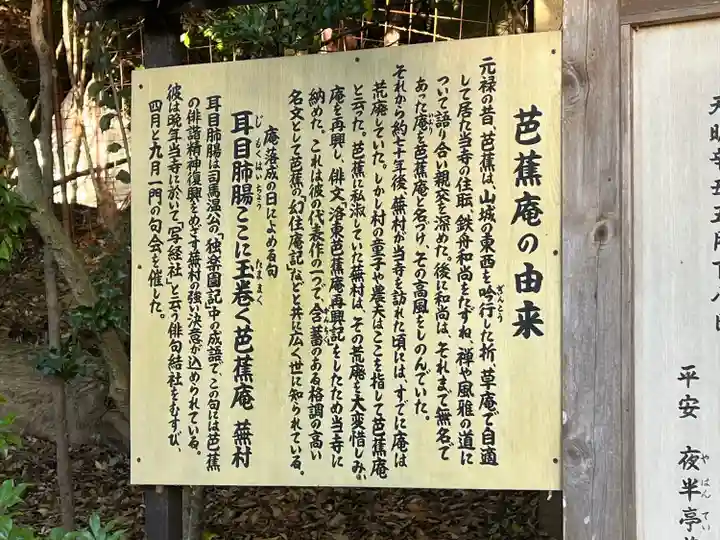 芭蕉庵の由来
元禄の昔、芭蕉は、山城の東西を吟行した折、草庵で自適
ぎんとう
して居た当寺の住職・鉄舟和尚をたずね、禅や風雅の道に
ついて語り合い親交を深めた。後に和尚は、それまで無名で
あった庵を芭蕉庵と名づけ、その高風をしのんでいた。
いおり
それから約七十年後、蕪村が当寺を訪れた頃には、すでに庵は
荒廃していた。しかし村の童子や農夫はここを指して芭蕉庵
と云った。芭蕉に私淑していた蕪村は、その荒廃を大変惜しみ、
庵を再興し、俳文、洛東芭蕉庵再興記をしたため当寺に
納めた。これは彼の代表作の一つで、含蓄のある格調の高い
がんちく
名文として芭蕉の「幻住庵記」などと共に広く世に知られている。
庵落成の日によめる句
耳目肺腸ここに玉巻く芭蕉庵 蕪村
じもくはいちょう
たままく
耳目肺腸は司馬温公の「独楽園記」中の成語で、この句には芭蕉
の俳諧精神復興をめざす蕪村の強い決意が込められている。
彼は晩年当寺に於いて「写経社」と云う俳句結社をむすび、
四月と九月一門の句会を催した。
平安 夜半亭
やはんてい